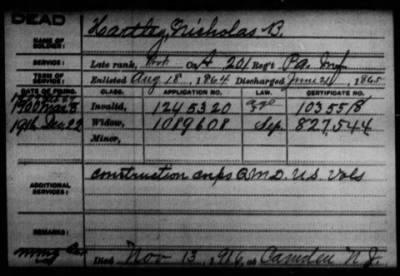 DEAD
NAME OF SOLDIER: Hartley, Nicholas B.
SERVICE: Late rank, Co. A 201 Reg't Pa. Inf.
TERM OF SERVICE: Enlisted Aug 18, 1864 Discharged June 21, 1865
DATE OF FILING. CLASS. APPLICATION NO. LAW. CERTIFICATE NO.
1900 Invalid, 1245320 1035518
1916 Dec 22 Widow, 1089608 Sep. 827,544
Minor,
ADDITIONAL SERVICES: Construction Corps Q.M.D. U.S. Vols
REMARKS:
Died Nov 13, 1916, at Camden N.J.